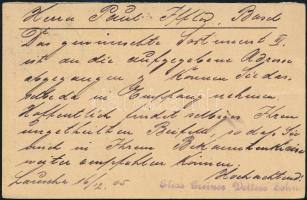 Herrn Paul Hfler, Basel
Das gewünschte Sortiment II.
ist an die aufgegebene Adresse
abgegangen & können Sie das-
selbe da in Empfang nehmen.
Hoffentlich findet selbiges Ihren
ungetheilten Beifall, so daß Sie
mich in Ihrem Bekanntenkreise
weiter empfehlen können.
Hochachtend
Lauscha 16/2. 05
Elias Greiner Vetters Sohn